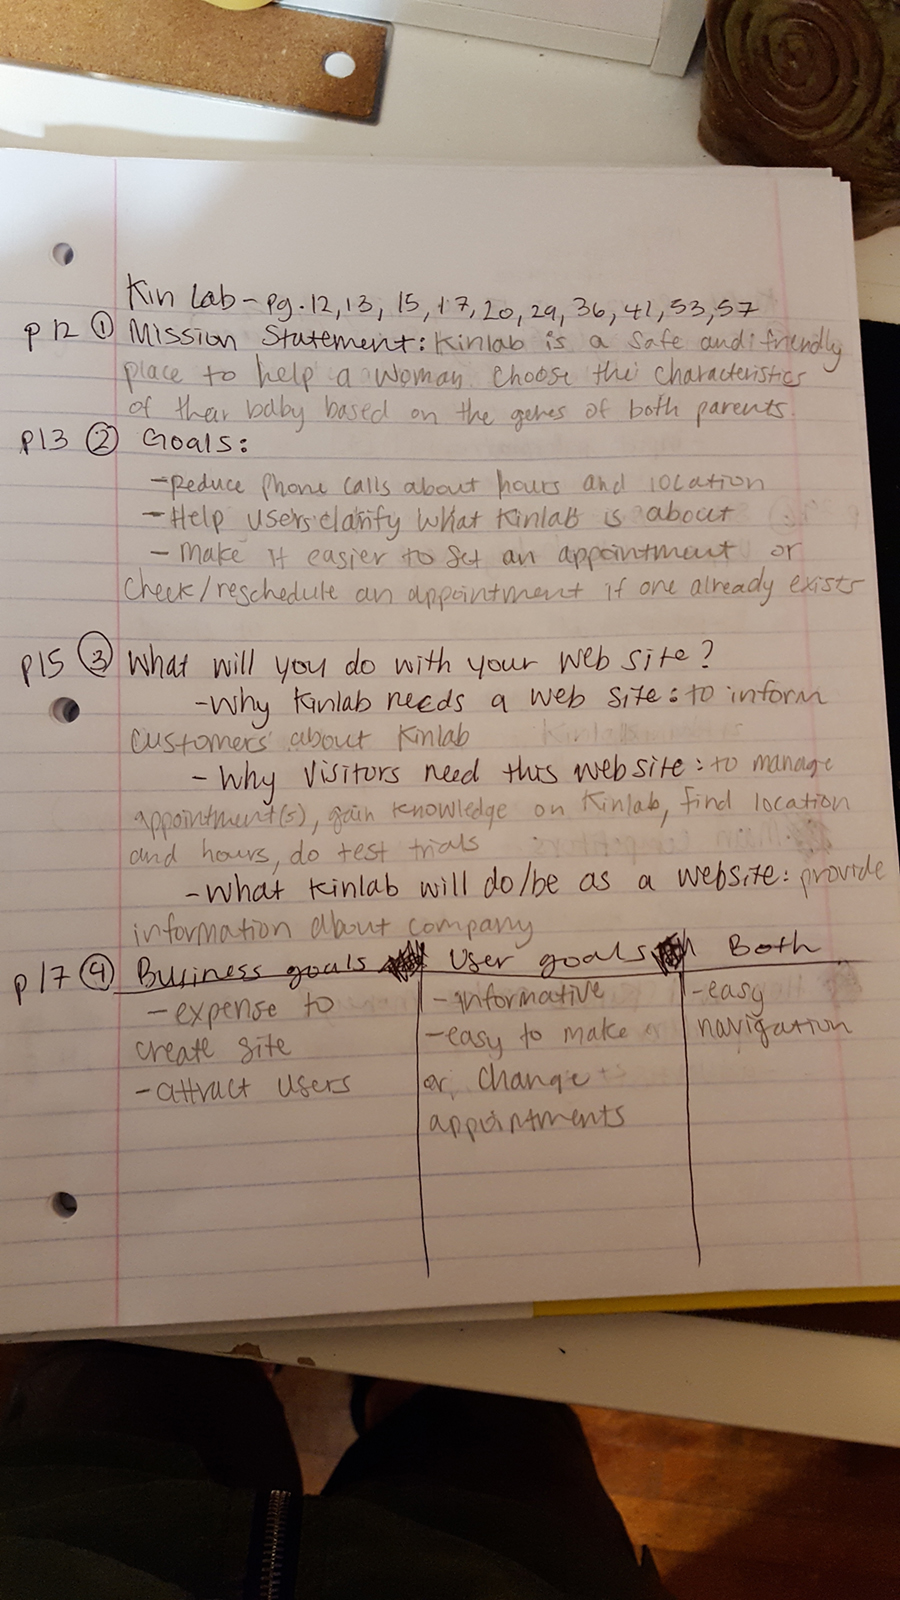 Kin Lab - pg. 12, 13, 15, 17, 20, 29, 36, 41, 53, 57
p12 ① Mission Statement: Kinlab is a safe and friendly
place to help a woman choose the characteristics
of their baby based on the genes of both parents.
p13 ② Goals:
- Reduce phone calls about hours and location
- Help users clarify what Kinlab is about
- Make it easier to set an appointment or
check/reschedule an appointment if one already exists
p15 ③ What will you do with your web site?
- Why Kinlab needs a web site: to inform
customers about Kinlab
- Why visitors need this website: to manage
appointment(s), gain knowledge on Kinlab, find location
and hours, do test trials
- What Kinlab will do/be as a website: provide
information about company
p17 ④ Business goals User goals Both
- expense to - informative - easy
create site - easy to make navigation
- attract users or change
appointments